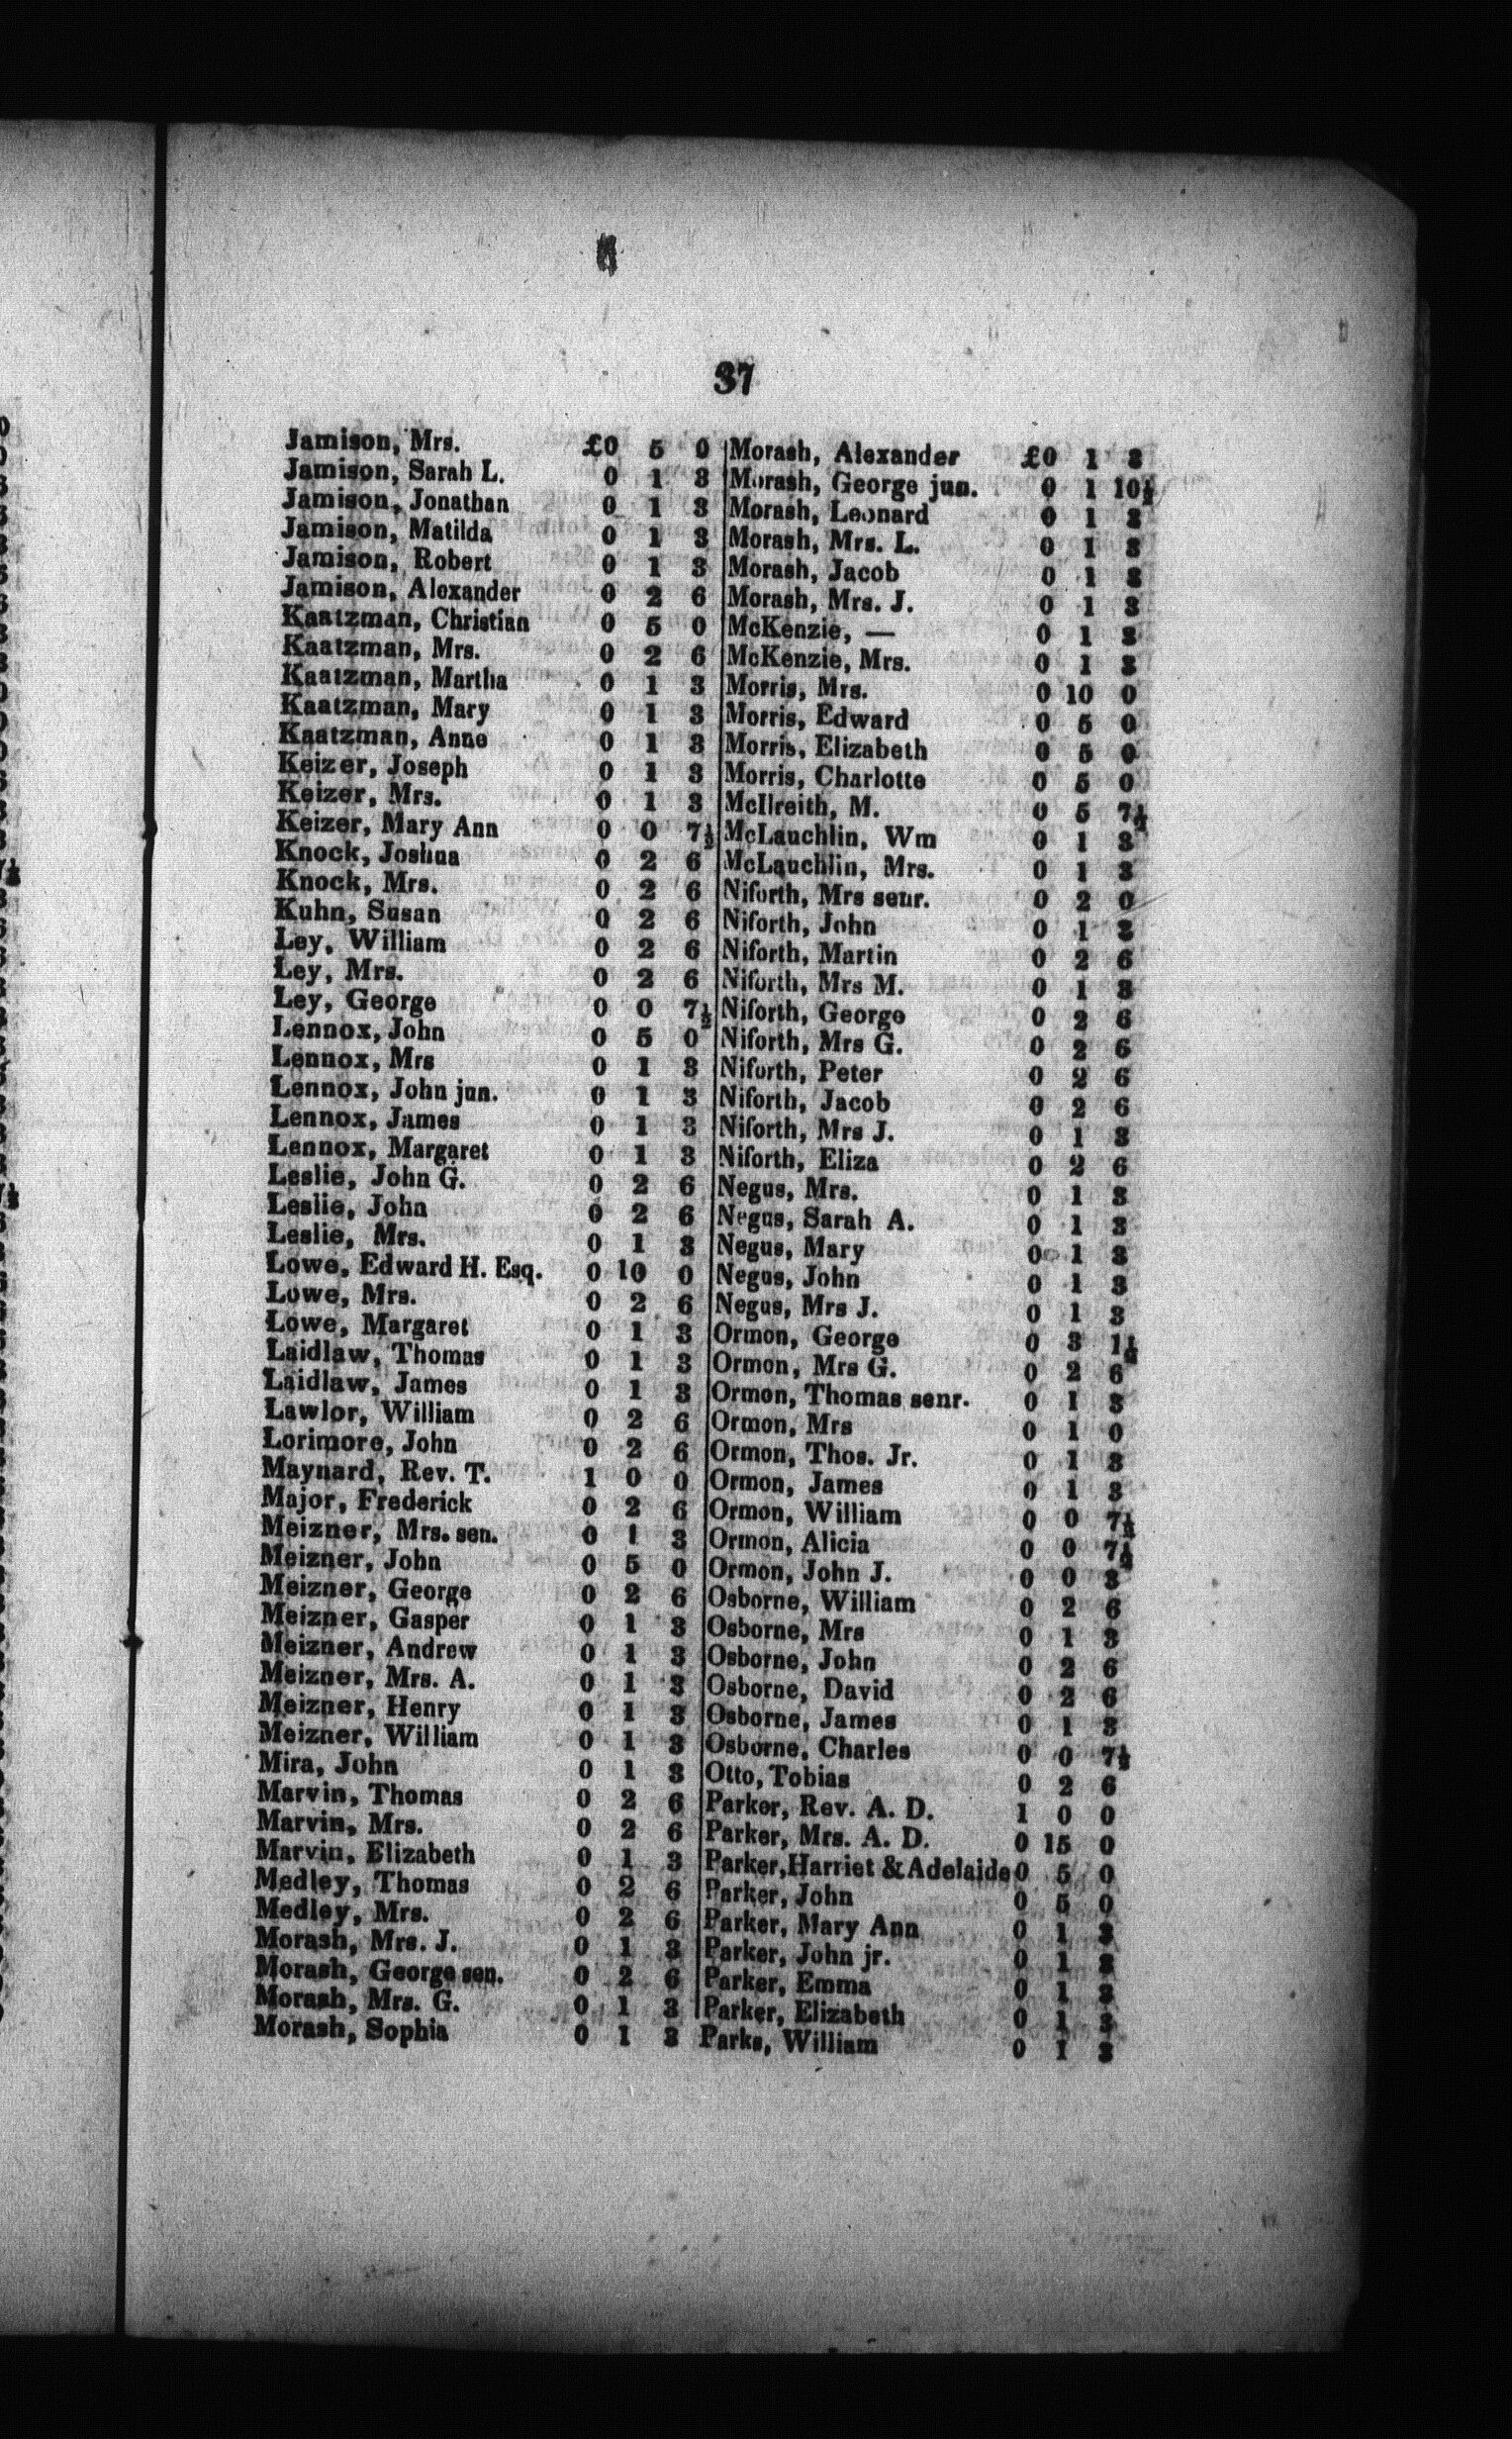 37
Jamison, Mrs. £0 5 0
Jamison, Sarah L. 0 1 3
Jamison, Jonathan 0 1 3
Jamison, Matilda 0 1 3
Jamison, Robert 0 1 3
Jamison, Alexander 0 2 6
Kaatzman, Christian 0 5 0
Kaatzman, Mrs. 0 2 6
Kaatzman, Martha 0 1 3
Kaatzman, Mary 0 1 3
Kaatzman, Anne 0 1 3
Keizer, Joseph 0 1 3
Keizer, Mrs. 0 1 3
Keizer, Mary Ann 0 0 7½
Knock, Joshua 0 2 6
Knock, Mrs. 0 2 6
Kuhn, Susan 0 2 6
Ley, William 0 2 6
Ley, Mrs. 0 2 6
Ley, George 0 0 7½
Lennox, John 0 5 0
Lennox, Mrs 0 1 3
Lennox, John jun. 0 1 3
Lennox, James 0 1 3
Lennox, Margaret 0 1 3
Leslie, John G. 0 2 6
Leslie, John 0 2 6
Leslie, Mrs. 0 1 3
Lowe, Edward H. Esq. 0 10 0
Lowe, Mrs. 0 2 6
Lowe, Margaret 0 1 3
Laidlaw, Thomas 0 1 3
Laidlaw, James 0 1 3
Lawlor, William 0 2 6
Lorimore, John 0 2 6
Maynard, Rev. T. 1 0 0
Major, Frederick 0 2 6
Meizner, Mrs. sen. 0 1 3
Meizner, John 0 5 0
Meizner, George 0 2 6
Meizner, Gasper 0 1 3
Meizner, Andrew 0 1 3
Meizner, Mrs. A. 0 1 3
Meizner, Henry 0 1 3
Meizner, William 0 1 3
Mira, John 0 1 3
Marvin, Thomas 0 2 6
Marvin, Mrs. 0 2 6
Marvin, Elizabeth 0 1 3
Medley, Thomas 0 2 6
Medley, Mrs. 0 2 6
Morash, Mrs. J. 0 1 3
Morash, George sen. 0 2 6
Morash, Mrs. G. 0 1 3
Morash, Sophia 0 1 3
Morash, Alexander £0 1 3
Morash, George jun. 0 1 10½
Morash, Leonard 0 1 3
Morash, Mrs. L. 0 1 3
Morash, Jacob 0 1 3
Morash, Mrs. J. 0 1 3
McKenzie, — 0 1 3
McKenzie, Mrs. 0 1 3
Morris, Mrs. 0 10 0
Morris, Edward 0 5 0
Morris, Elizabeth 0 5 0
Morris, Charlotte 0 5 0
McIlreith, M. 0 5 7½
McLauchlin, Wm 0 1 3
McLauchlin, Mrs. 0 1 3
Niforth, Mrs senr. 0 2 0
Niforth, John 0 1 3
Niforth, Martin 0 2 6
Niforth, Mrs M. 0 1 3
Niforth, George 0 2 6
Niforth, Mrs G. 0 2 6
Niforth, Peter 0 2 6
Niforth, Jacob 0 2 6
Niforth, Mrs J. 0 1 3
Niforth, Eliza 0 2 6
Negus, Mrs. 0 1 3
Negus, Sarah A. 0 1 3
Negus, Mary 0 1 3
Negus, John 0 1 3
Negus, Mrs J. 0 1 3
Ormon, George 0 3 1½
Ormon, Mrs G. 0 2 6
Ormon, Thomas senr. 0 1 3
Ormon, Mrs 0 1 0
Ormon, Thos. Jr. 0 1 3
Ormon, James 0 1 3
Ormon, William 0 0 7½
Ormon, Alicia 0 0 7½
Ormon, John J. 0 0 3
Osborne, William 0 2 6
Osborne, Mrs 0 1 3
Osborne, John 0 2 6
Osborne, David 0 2 6
Osborne, James 0 1 3
Osborne, Charles 0 0 7½
Otto, Tobias 0 2 6
Parker, Rev. A. D. 1 0 0
Parker, Mrs. A. D. 0 15 0
Parker, Harriet & Adelaide 0 5 0
Parker, John 0 5 0
Parker, Mary Ann 0 1 3
Parker, John jr. 0 1 3
Parker, Emma 0 1 3
Parker, Elizabeth 0 1 3
Parks, William 0 1 3